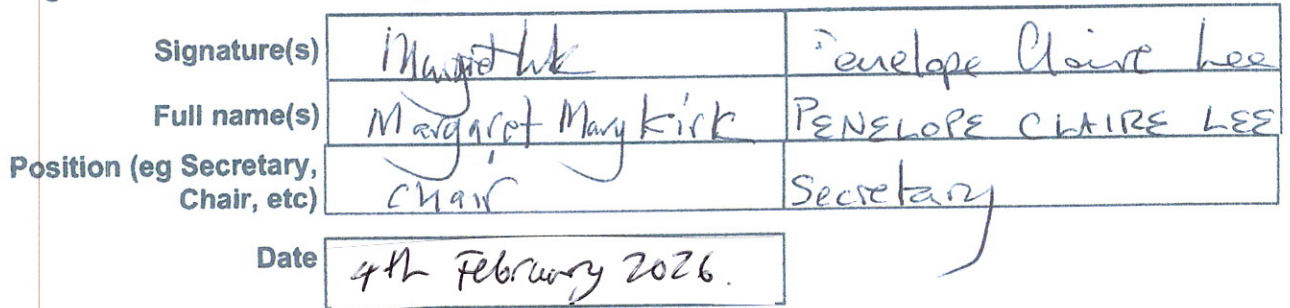 Signature(s) Penelope Claire Lee
Full name(s) Margaret Mary Kirk PENELOPE CLAIRE LEE
Position (eg Secretary,
Chair, etc) Chair Secretary
Date 4th February 2026.